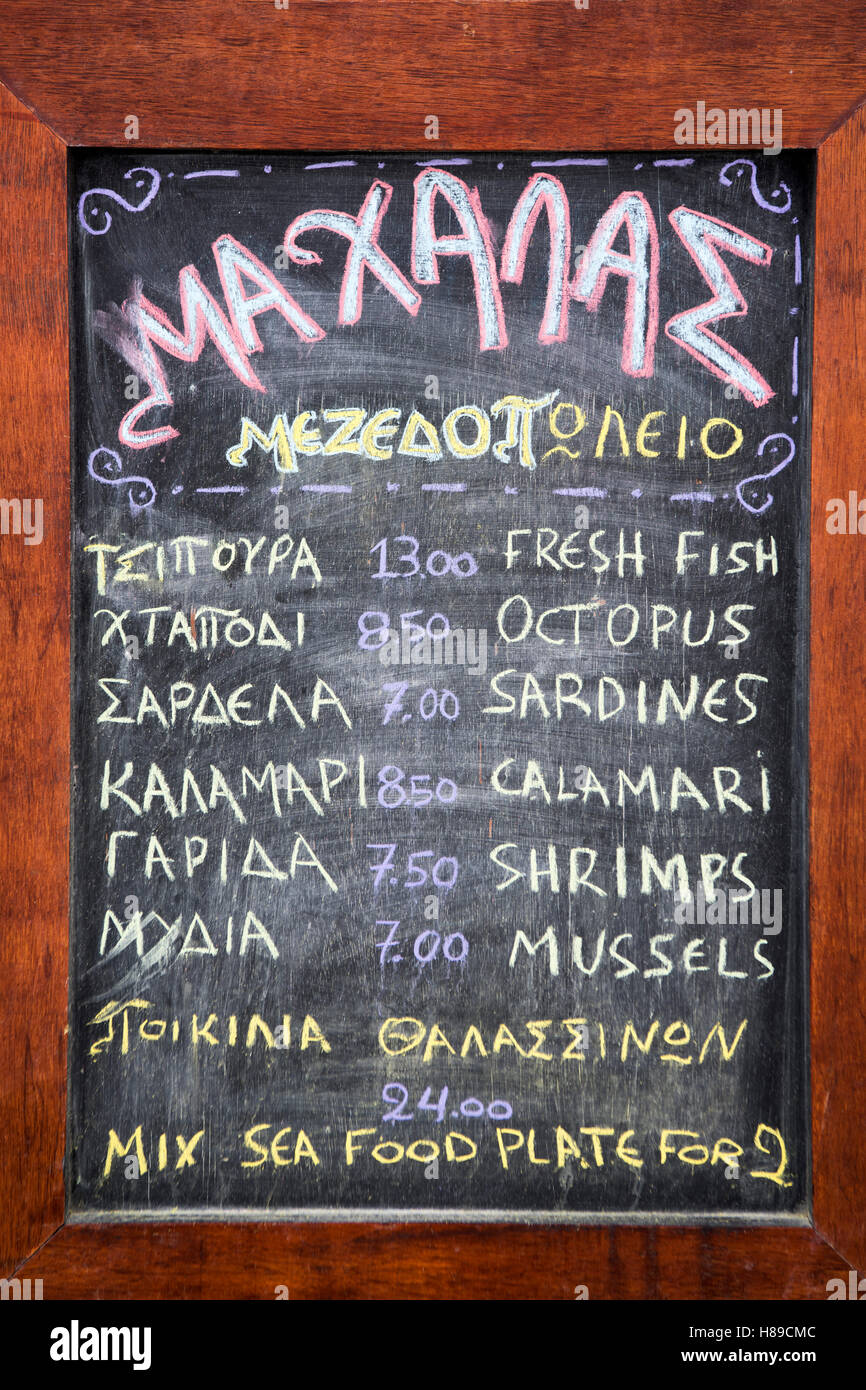 ΜΑΧΑΛΑΣ
ΜΕΖΕΔΟΠΩΛΕΙΟ
ΤΣΙΠΟΥΡΑ 13.00 FRESH FISH
ΧΤΑΠΟΔΙ 8.50 OCTOPUS
ΣΑΡΔΕΛΑ 7.00 SARDINES
ΚΑΛΑΜΑΡΙ 8.50 CALAMARI
ΓΑΡΙΔΑ 7.50 SHRIMPS
ΜΥΔΙΑ 7.00 MUSSELS
ΠΟΙΚΙΛΙΑ ΘΑΛΑΣΣΙΝΩΝ
24.00
MIX SEA FOOD PLATE FOR 2
alamy
Image ID: H89CMC
www.alamy.com